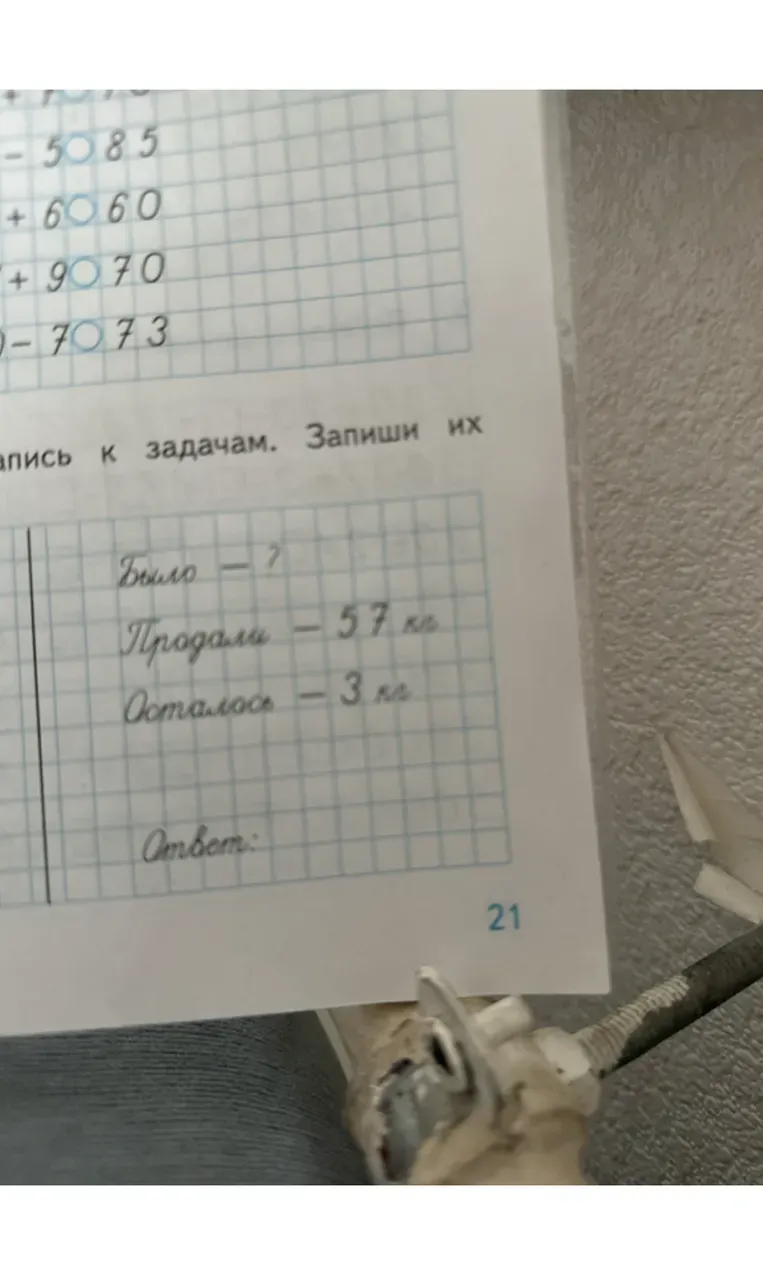 - 5○85
+ 6○60
+ 9○70
- 7○73
апись к задачам. Запиши их
Было - ?
Продали - 57 кг
Осталось - 3 кг
Ответ:
21